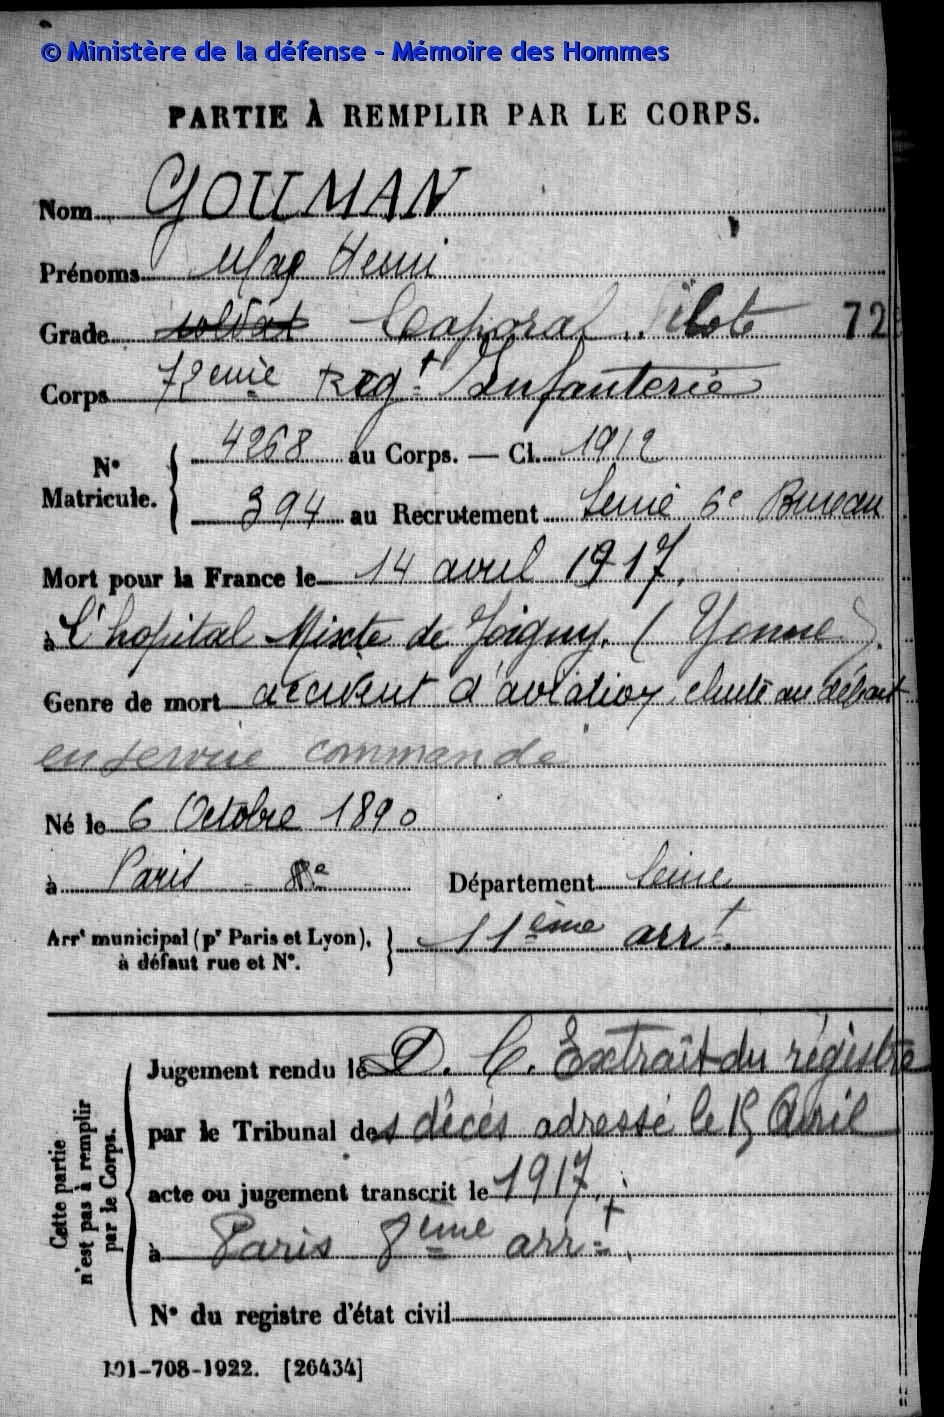 © Ministère de la défense - Mémoire des Hommes
PARTIE À REMPLIR PAR LE CORPS.
Nom GOUMAN
Prénoms Henri
Grade soldat Caporal Pilote 72
Corps 72eme Regt Infanterie
N° Matricule. 4268 au Corps. — Cl. 1912
394 au Recrutement Seine 6e Bureau
Mort pour la France le 14 avril 1917.
à l'hopital Mixte de Joigny. (Yonne).
Genre de mort accident d'aviation chute au départ
en service commandé
Né le 6 Octobre 1890
à Paris - 8e Département Seine
Arrt municipal (pr Paris et Lyon), à défaut rue et N°. 11ème arrt.
Cette partie n'est pas à remplir par le Corps.
Jugement rendu le D. C. Extrait du régistre
par le Tribunal des décés adressé le 15 Avril
acte ou jugement transcrit le 1917.
à Paris 8ème arrt.
N° du registre d'état civil
101-708-1922. [26434]